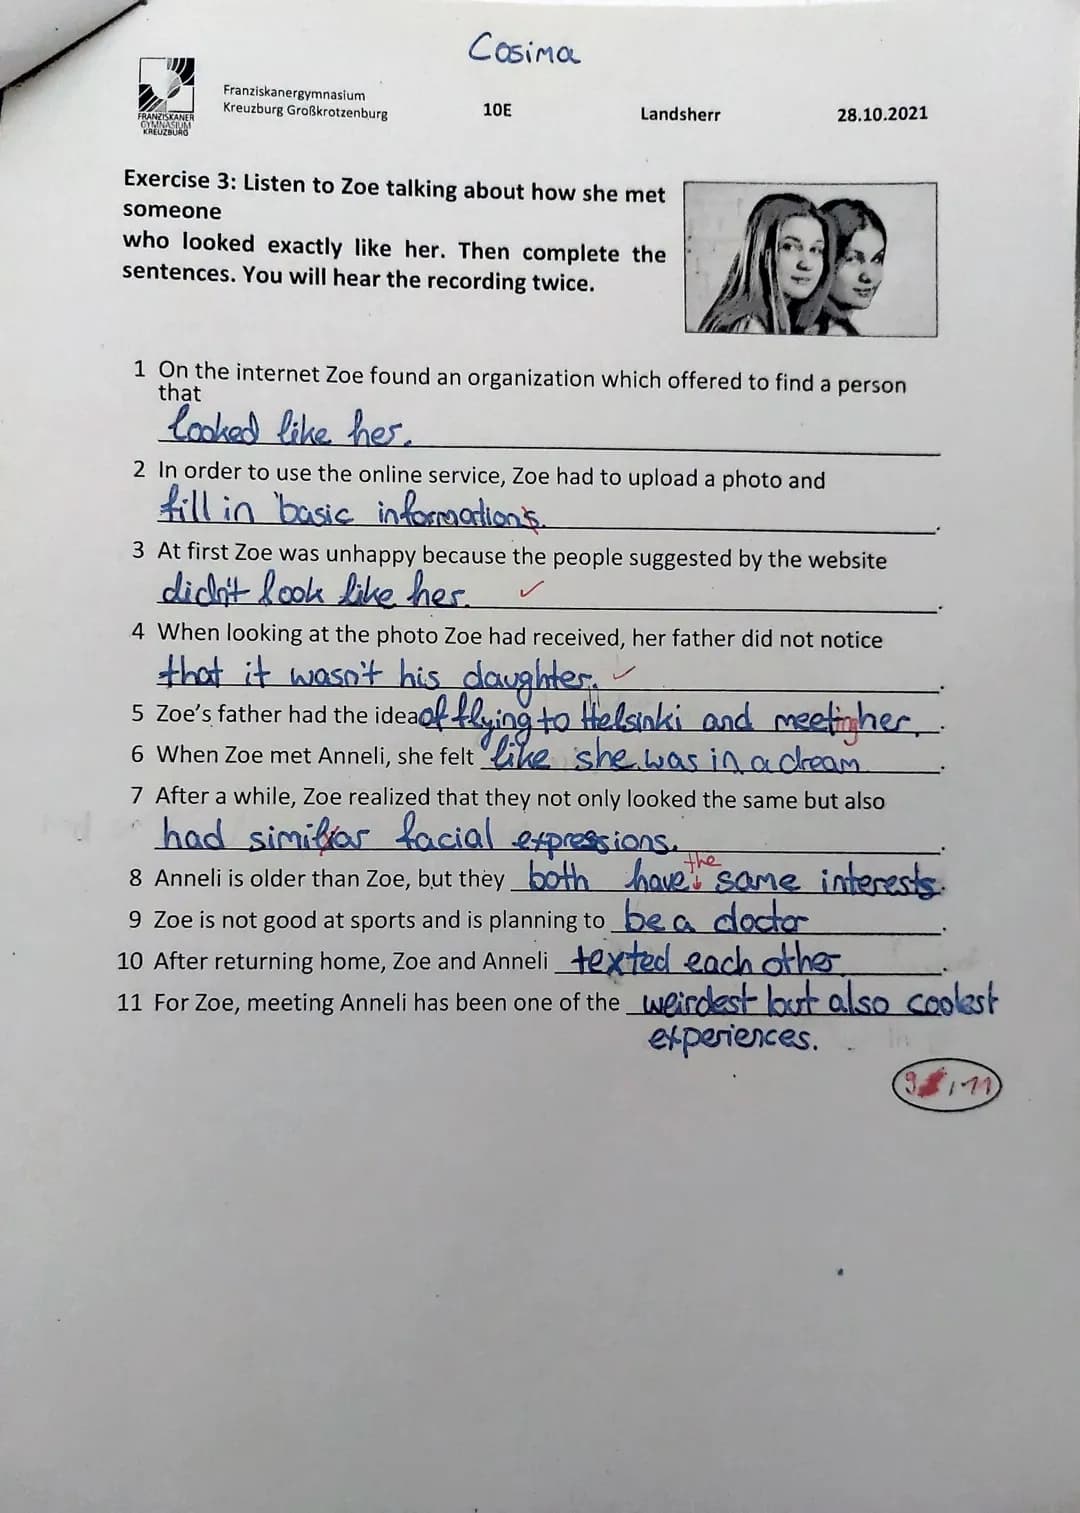 Cosima
FRANZISKANER
GYMNASIUM
KREUZBURG
Franziskanergymnasium
Kreuzburg Großkrotzenburg
10E
Landsherr
28.10.2021
Exercise 3: Listen to Zoe talking about how she met
someone
who looked exactly like her. Then complete the
sentences. You will hear the recording twice.
1 On the internet Zoe found an organization which offered to find a person
that
looked like her.
2 In order to use the online service, Zoe had to upload a photo and
fill in basic informations.
3 At first Zoe was unhappy because the people suggested by the website
didn't look like her. ✓
4 When looking at the photo Zoe had received, her father did not notice
that it wasn't his daughter. ✓
5 Zoe's father had the idea of flying to Helsinki and meeting her.
6 When Zoe met Anneli, she felt like she was in a dream.
7 After a while, Zoe realized that they not only looked the same but also
had similar facial expressions.
the
8 Anneli is older than Zoe, but they both have same interests.
9 Zoe is not good at sports and is planning to be a doctor.
10 After returning home, Zoe and Anneli texted each other.
11 For Zoe, meeting Anneli has been one of the weirdest but also coolest
experiences.